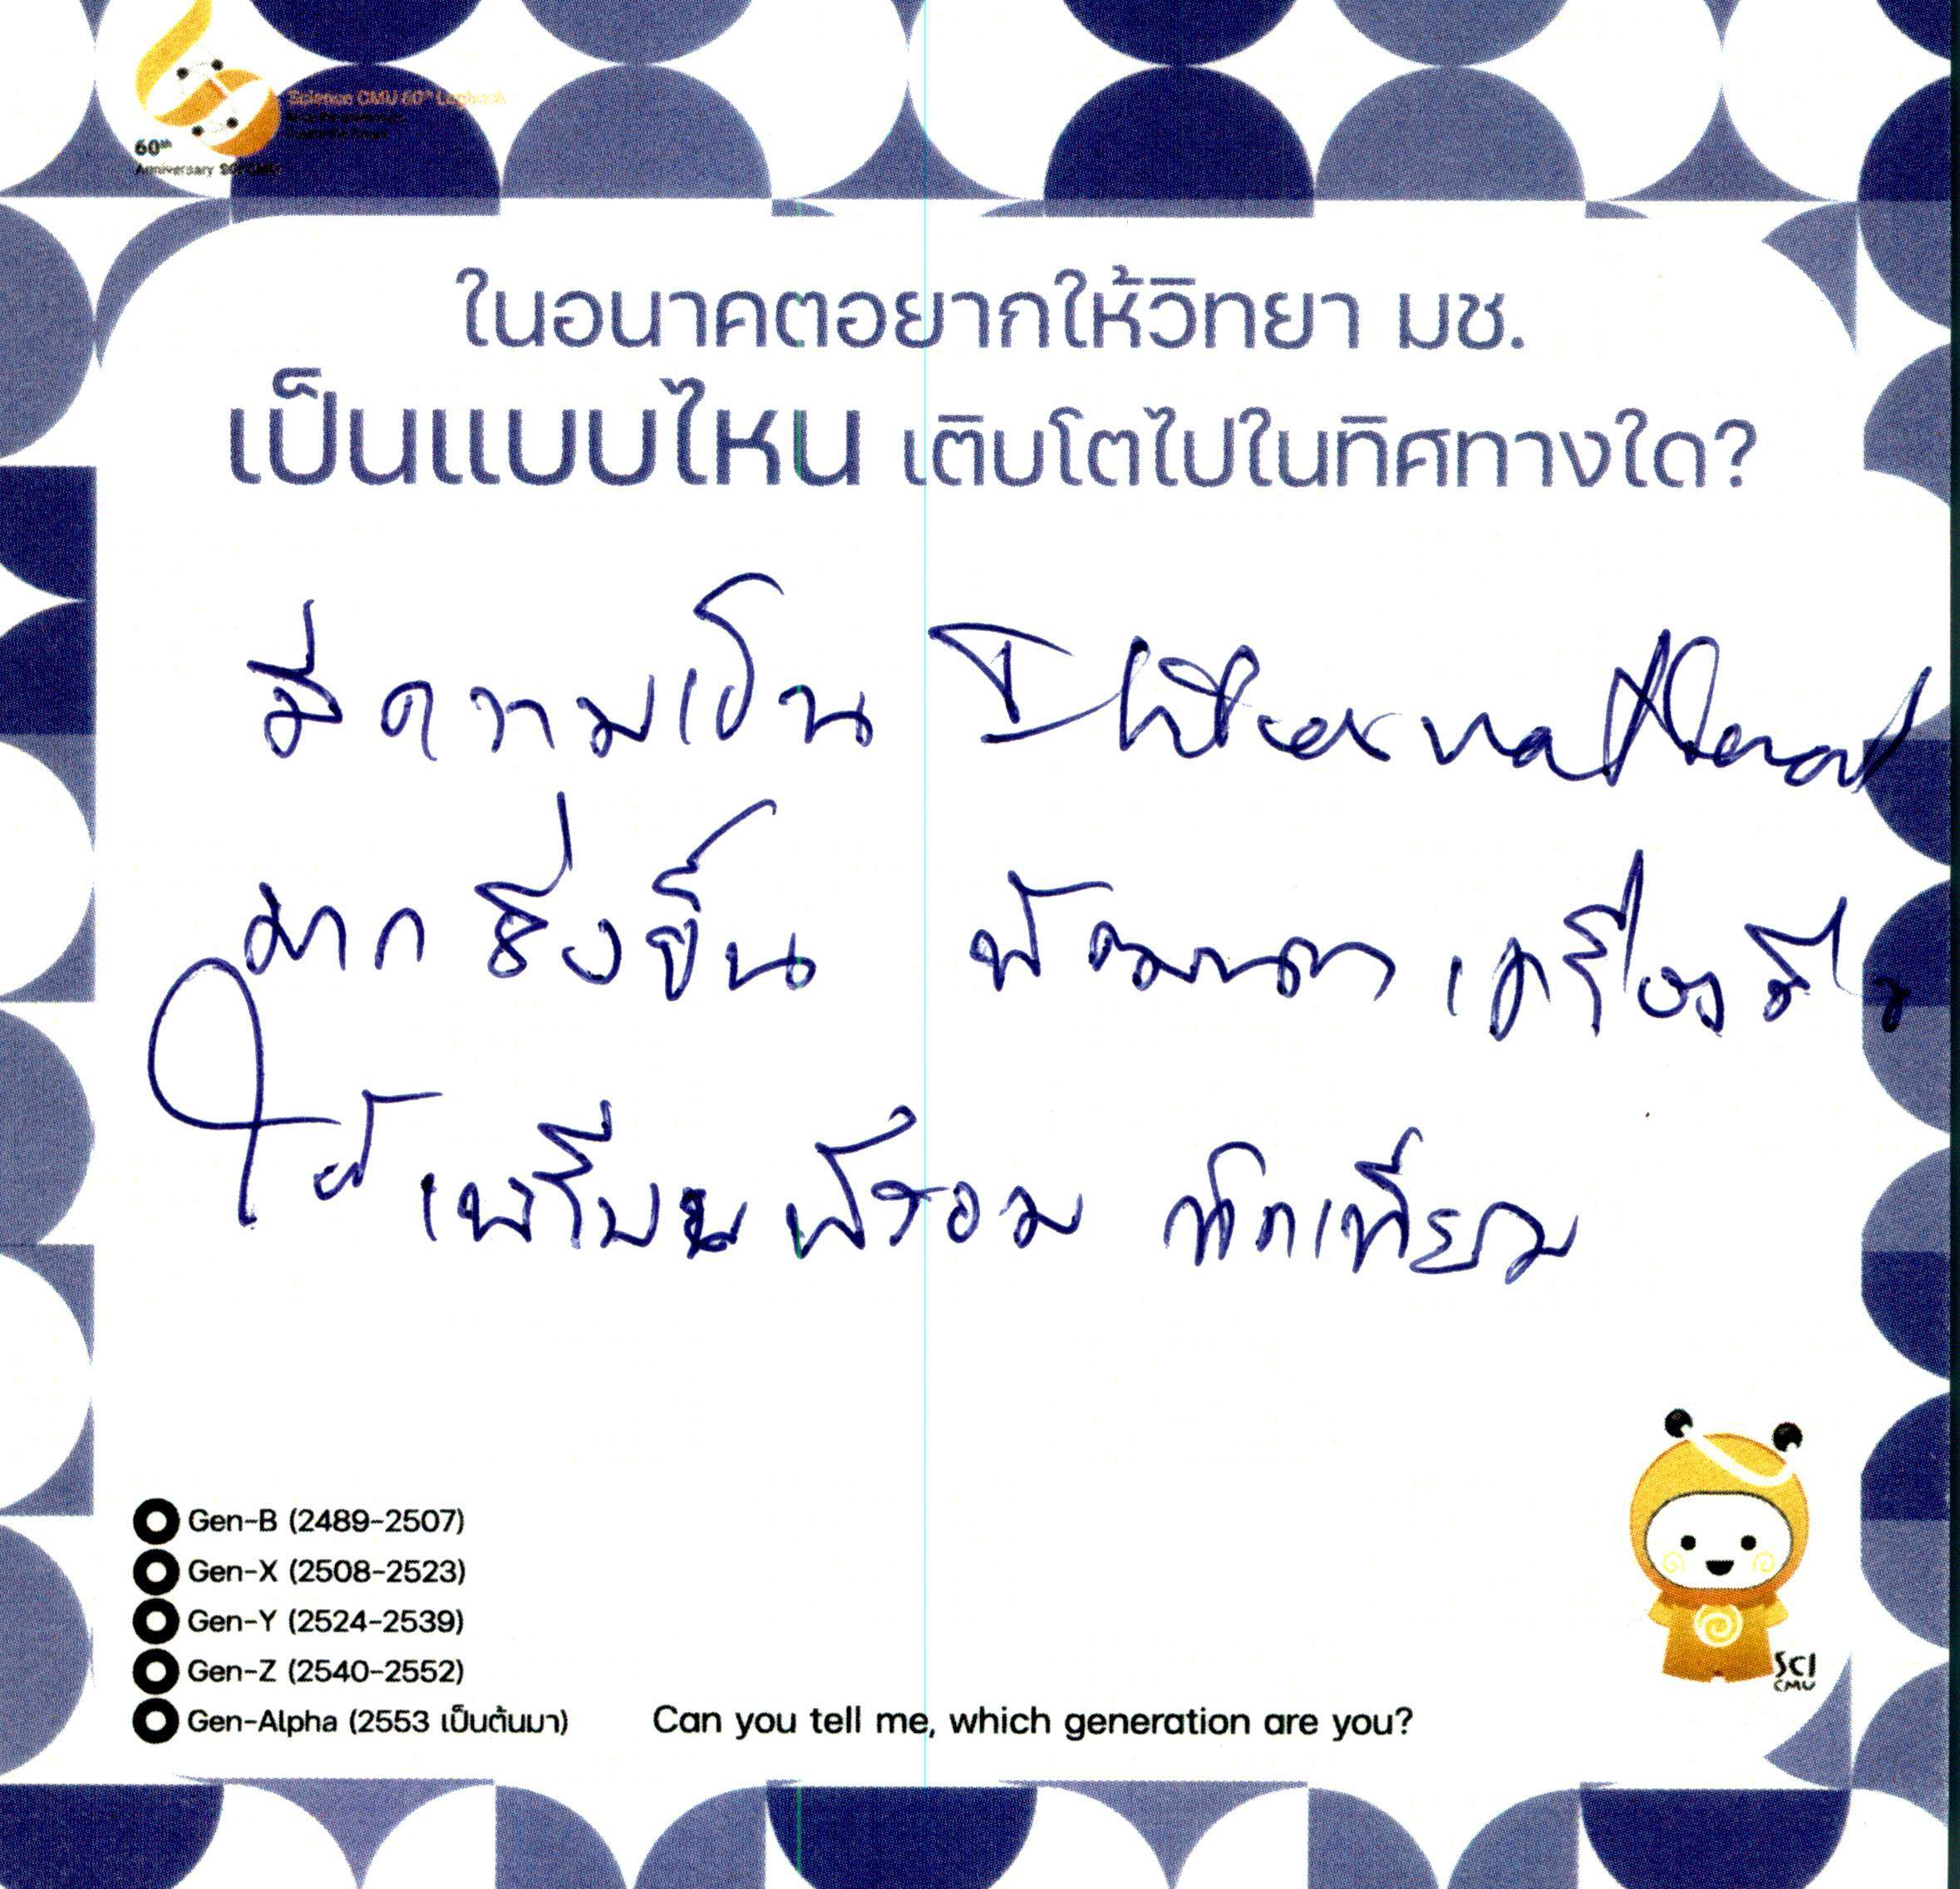 Science CMU 60th Logbook
60th
Anniversary SCI CMU
ในอนาคตอยากให้วิทยา มช.
เป็นแบบไหน เติบโตไปในทิศทางใด?
มีความเป็น International
มากยิ่งขึ้น พัฒนาเครื่องมือ
ให้เพรียบพร้อม ทัดเทียม
Gen-B (2489-2507)
Gen-X (2508-2523)
Gen-Y (2524-2539)
Gen-Z (2540-2552)
Gen-Alpha (2553 เป็นต้นมา)
Can you tell me, which generation are you?
SCI
CMU